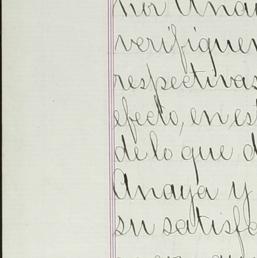 por Anay
verifiquen
respectivas
efecto, en es
de lo que d
Anaya y
su satisfa